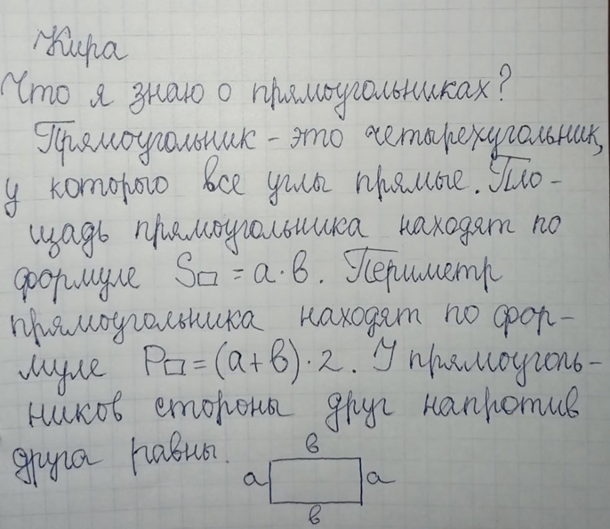 Кира
Что я знаю о прямоугольниках?
Прямоугольник - это четырехугольник,
у которого все углы прямые. Пло-
щадь прямоугольника находят по
формуле S▭ = a · b. Периметр
прямоугольника находят по фор-
муле P▭ = (a + b) · 2. У прямоуголь-
ников стороны друг напротив
друга равны.
b
a a
b